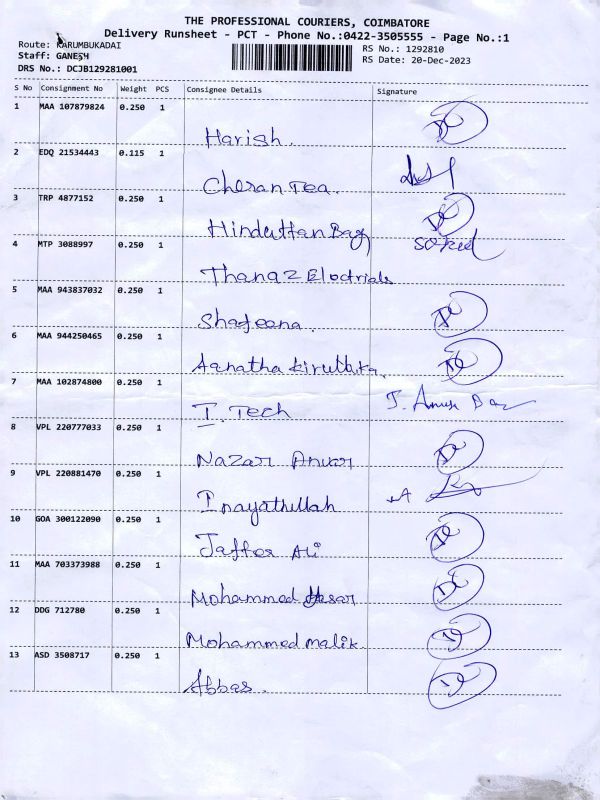 THE PROFESSIONAL COURIERS, COIMBATORE
Delivery Runsheet - PCT - Phone No.:0422-3505555 - Page No.:1
Route: KARUMBUKADAI
RS No.: 1292810
Staff: GANESH
RS Date: 20-Dec-2023
DRS No.: DCJB129281001
S No Consignment No Weight PCS Consignee Details Signature
1 MAA 107879824 0.250 1
Harish.
2 EDQ 21534443 0.115 1
Cheran Tea.
3 TRP 4877152 0.250 1
Hindustan Bag
4 MTP 3088997 0.250 1
Thanaz Eloctricals
5 MAA 943837032 0.250 1
Shafeena.
6 MAA 944250465 0.250 1
7 MAA 102874800 0.250 1
I. Tech
8 VPL 220777033 0.250 1
Nazar Anvar
9 VPL 220881470 0.250 1
Inayathullah
10 GOA 300122090 0.250 1
Jaffer Ali
11 MAA 703373988 0.250 1
Mohammed
12 DDG 712780 0.250 1
Mohammed Malik.
13 ASD 3508717 0.250 1
Abbas.